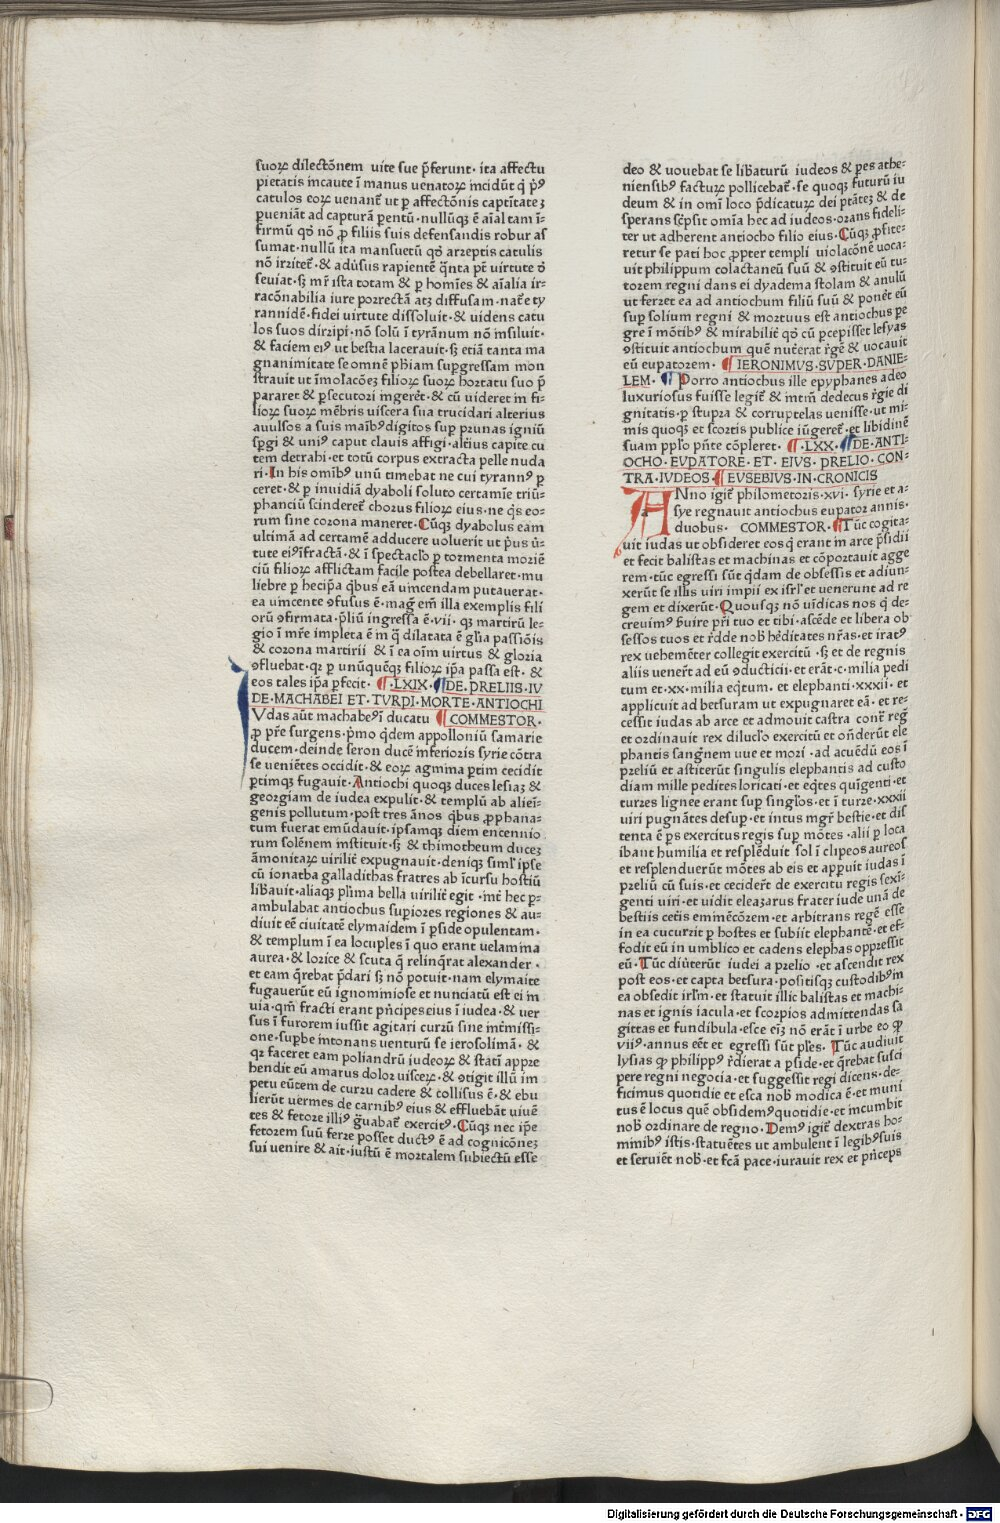 suoꝝ dilectōnem vite sue p̄ferunt· ita affectu
pietatis incaute ī manus uenatoꝝ incidūt q̇ p̄ꝰ
catulos eoꝝ uenant᷑ ut ꝑ affectōnis captītateꝫ
ꝑueniāt ad capturā ꝑentū· nullūqꝫ ē aīal tam ī-
firmū qd̓ nō ꝓ filiis suis defensandis robur as
sumat· nullū ita mansuetū qd̓ arreptis catulis
nō irritet᷑· & adu̓sus rapientē q̄nta pt̄ virtute ō
seuiat· sꝫ mr̄ ista totam & ꝑ homīes & aīalia ir-
racōnabilia iure porrectā atqꝫ diffusam· nat᷑e ty
rannidē· fidei virtute dissoluit· & uidens catu
los suos diripi· nō solū ī tyrānum nō īsiluit·
& faciem eiꝰ ut bestia lacerauit· sꝫ etiā tanta ma
gnanimitate se omnē phiam suꝑgressam mon
strauit ut īmolacōeꝫ filioꝝ suoꝝ hortatu suo p̄
pararet & ꝑsecutori īgeret· & cū uideret in fi-
lioꝝ suoꝝ mēbris uiscera sua trucidari alterius
auulsos a suis maībꝰ digitos suꝑ prunas igniū
sꝑgi & uniꝰ caput clauis affigi· alt̓ius capite cu
tem detrahi· et totū corpus extracta pelle nuda
ri· In his omībꝰ unū timebat ne cui tyrannꝰ ꝑ
ceret· & ꝑ inuidiā dyaboli soluto certamīe triū-
phanciū scinderet᷑ chorus filioꝝ eius· ne q̇s eo-
rum sine corona maneret· Cūqꝫ dyabolus eam
ultimā ad certamē adducere uoluerit ut p̄us ū-
tute eiꝰ īfractā· & ī spectac̄lo ꝑ tormenta moriē
ciū filioꝝ afflictam facile postea debellaret· mu
liebre ꝑ hec ip̄a q̇bus eā uincendam putauerat·
ea uincente ꝯfusus ē· mag̃ em̄ illa exemplis fili
orū ꝯfirmata· p̄liū ingressa ē· vii· qꝫ martirū le-
gio ī mr̄e impleta ē in q̄ dilatata ē gl̄ia passiōis
& corona martirii & ī ea oīm virtus & gloria
ꝯfluebat· qꝛ ꝑ unūquēqꝫ filioꝝ ip̄a passa est· &
eos tales ip̄a ꝑfecit· ¶·LXIX·¶DE·PRELIIS·IV
DE·MACHABEI ET·TVRPI·MORTE·ANTIOCHI
Vdas aūt machabeꝰ ī ducatu ¶COMMESTOR·
ꝓ pr̄e surgens· p̄mo q̇dem appolloniū samarie
ducem· deinde seron ducē inferioris syrie cōtra
se ueniētes occidit· & eoꝝ agmina ꝑtim cecidit
ꝑtimqꝫ fugauit· Antiochi quoqꝫ duces lesiaꝫ &
georgiam de iudea expulit· & templū ab alieī-
genis pollutum· post tres ānos q̇bus ꝓphana-
tum fuerat emūdauit· ipsamqꝫ diem encennio
rum solēnem instituit· sꝫ & thimotheum duceꝫ
āmonitaꝝ uirilit᷑ expugnauit· deniqꝫ siml̓ ipse
cū ionatha galladithas fratres ab īcursu hostiū
lib̓auit· aliaqꝫ pl̓ima bella uirilit᷑ egit· īt᷑ hec ꝑ-
ambulabat antiochus suꝑiores regiones & au-
diuit eē ciuitatē elymaidem ī ꝑside opulentam·
& templum ī ea locuples ī quo erant uelamina
aurea· & lorice & scuta q̄ relinq̄rat alexander·
et eam q̄rebat p̄dari sꝫ nō potuit· nam elymaite
fugauerūt eū ignominiose et nunciatū est ei in
uia· qm̄ fracti erant pn̄cipes eius ī iudea· & uer
sus ī furorem iussit agitari currū sine īt᷑missi-
one· suꝑbe intonans uenturū se ierosolimā· &
qꝛ faceret eam poliandrū iudeoꝝ & statī appre
hendit eū amarus dolor uisceꝝ· & ꝯtigit illū im
petu eūtem de curru cadere & collisus ē· & ebu
lierūt uermes de carnibꝰ eius & effluebāt uiuē
tes & fetore illiꝰ g̃uabat᷑ exercitꝰ· Cūqꝫ nec ip̄e
fetorem suū ferre posset ductꝰ ē ad cognicōneꝫ
sui uenire & ait· iustū ē mortalem subiectū esse
deo & uouebat se lib̓aturū iudeos & ꝑes athe-
niensibꝰ facturꝫ pollicebat᷑· se quoqꝫ futurū iu
deum & in om̄i loco p̄dicaturꝫ dei ptāteꝫ & de
sperans sc̓psit om̄ia hec ad iudeos· orans fideli-
ter ut adherent antiocho filio eius· Cūqꝫ ꝓfite-
retur se pati hoc ꝓpter templi uiolacōnē uoca-
uit philippum colactaneū suū & ꝯstituit eū tu-
torem regni dans ei dyadema stolam & anulū
ut ferret ea ad antiochum filiū suū & ponet᷑ eū
suꝑ solium regni & mortuus est antiochus pe
gre ī mōtibꝰ & mirabilit᷑ qd̓ cū ꝑcepisset lesyas
ꝯstituit antiochum quē nut̓erat r̄gē & uocauit
eū eupatorem· ¶IERONIMVS·SVPER·DANIE-
LEM·¶Porro antiochus ille epyphanes adeo
luxuriosus fuisse legit᷑ & intm̄ dedecus r̄gie di
gnitatis· ꝑ stupra & corruptelas uenisse· ut mi-
mis quoqꝫ et scortis publice iūgeret᷑· et libidinē
suam pp̓lo p̄nte cōpleret· ¶·LXX·¶DE·ANTI-
OCHO·EVPATORE·ET·EIVS·PRELIO·CON-
TRA·IVDEOS·¶EVSEBIVS·IN·CRONICIS
ANno igit᷑ philometoris·xvi· syrie et a-
sye regnauit antiochus eupator annis·
duobus· COMMESTOR·¶Tūc cogita-
uit iudas ut obsideret eos q̇ erant in arce p̄sidii
et fecit balistas et machinas et cōportauit agge
rem· tūc egressi sūt q̇dam de obsessis et adiun-
xerūt se illis uiri impii ex isrl̓ et uenerunt ad re
gem et dixerūt· Quousqꝫ nō uīdicas nos q̇ de-
creuimꝰ ẜuire pr̄i tuo et tibi· ascēde et libera ob
sessos tuos et r̄dde nob̓ he̓ditates nr̄as· et iratꝰ
rex uehemēter collegit exercitū· sꝫ et de regnis
aliis uener̄t ad eū ꝯducticii· et erāt·c·milia pedi
tum et·xx·milia eq̇tum· et elephanti·xxxii· et
applicuit ad betsuram ut expugnaret eā· et re-
cessit iudas ab arce et admouit castra cont᷑ reg̃
et ordinauit rex diluc̓lo exercitū et on̄derūt ele
phantis sangnem uue et mori· ad acuēdū eos ī
preliū et astiterūt singulis elephantis ad custo
diam mille pedites loricati· et eq̇tes quīgenti·et
turres lignee erant suꝑ singl̓os· et ī turre·xxxii
uiri pugnātes desuꝑ· et intus mgr̄ bestie· et dis
tenta ē ꝑs exercitus regis suꝑ mōtes·alii ꝑ loca
ibant humilia et resplēduit sol ī clipeos aureos
et resplenduerūt mōtes ab eis et appuit iudas ī
preliū cū suis· et cecider̄t de exercitu regis sexī-
genti uiri· et uidit eleazarus frater iude unā de
bestiis cetis emmēcōrem· et arbitrans regē esse
in ea cucurrit ꝑ hostes et subiit elephantē· et ef-
fodit eū in umblico et cadens elephas oppressit
eū· Tūc diu̓terūt iudei a prelio ·et ascendit rex
post eos· et capta betsura· positisqꝫ custodibꝰ in
ea obsedit irl̄m· et statuit illic balistas et machi-
nas et ignis iacula· et scorpios admittendas sa
gittas et fundibula· esce eiꝫ nō erāt ī urbe eo ꝙ
viiꝰ·annus eēt et egressi sūt pl̄es· Tūc audiuit
lysias ꝙ philippꝰ r̄dierat a ꝑside·et q̄rebat susci
pere regni negocia·et suggessit regi dicens·de-
ficimus quotidie et esca nob̓ modica ē·et muni
tus ē locus quē obsidemꝰ quotidie· et incumbit
nob̓ ordinare de regno· Demꝰ igit᷑ dextras ho-
minibꝰ istis· statuētes ut ambulent ī legibꝰ suis
et seruiēt nob̓·et fc̄a pace· iurauit rex et pn̄ceps
Digitalisierung gefördert durch die Deutsche Forschungsgemeinschaft - DFG